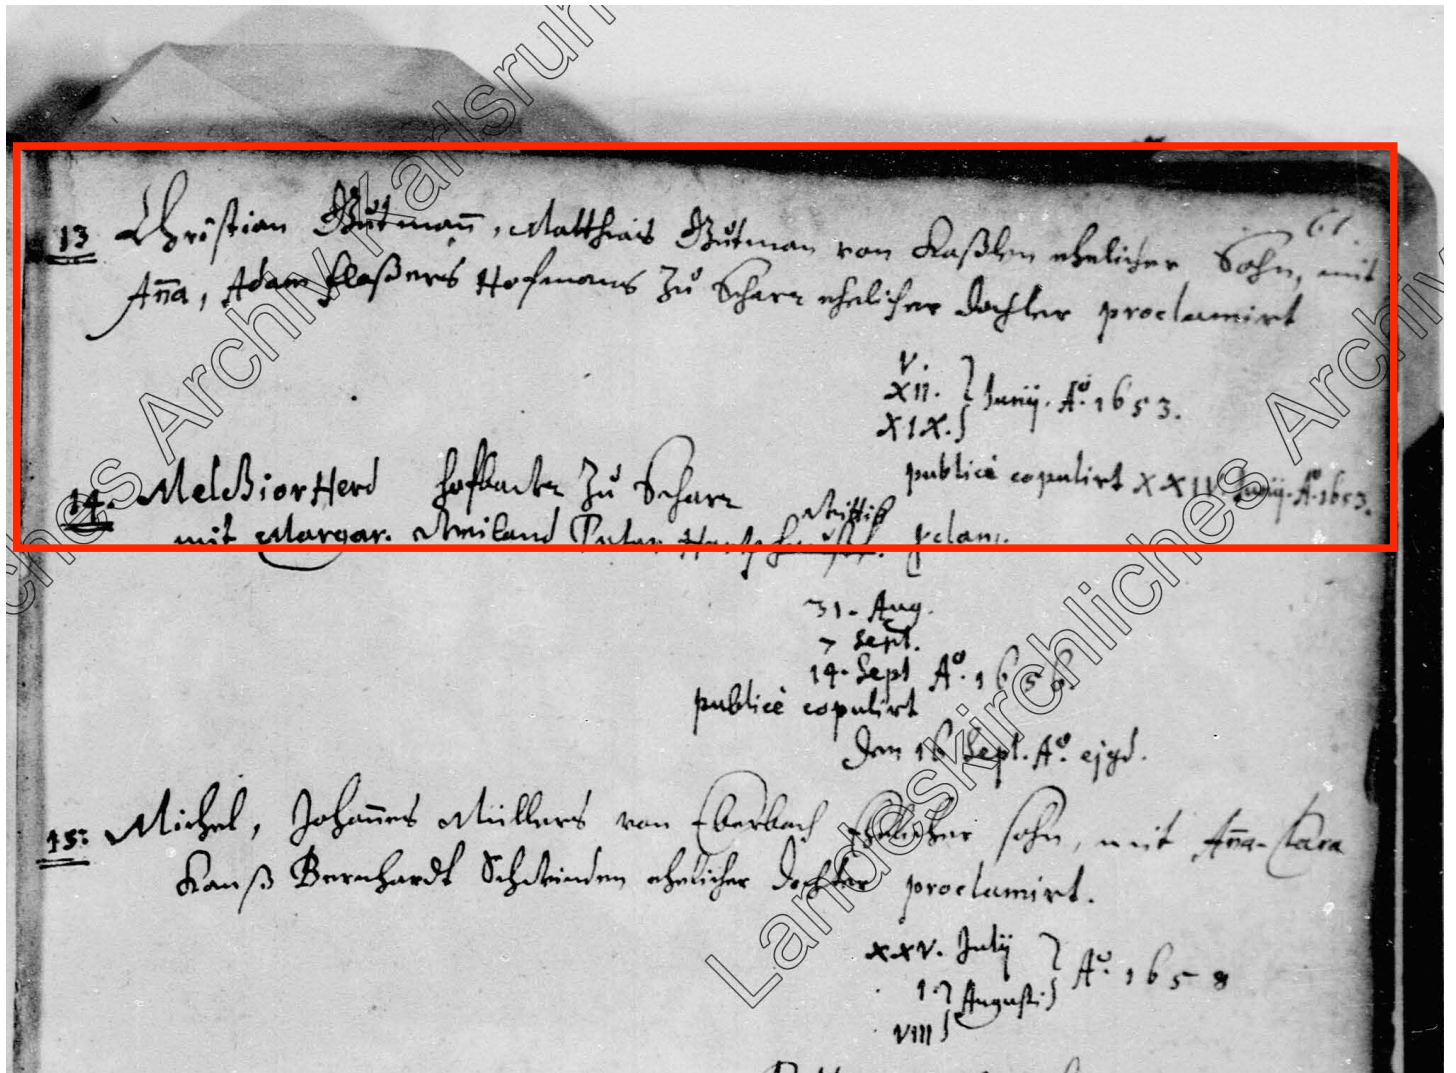 61.
13 Christian Gůtmañ, Matthias Gůtman von Kaßlen ehelicher Sohn, mit
Aña, Adam Hofmans Zů Scharr ehelicher dochter proclamirt
V.
XII. } Junij. Aº. 1653.
XIX.
publicè copulirt XXII Junij. Aº. 1653.
14. Melchior Herd hofbaůer Zů Scharr
mit Margar. Weiland Peter
31. Aug.
7 Sept.
14. Sept Aº. 1656.
publicè copulirt
den 16 Sept. Aº. ejsd.
15: Michel, Johañes Müllers von Eberbach Ehelicher sohn, mit Aña-Clara
Hanß Bernhardt ehelicher dochter proclamirt.
XXV. Julij
1. } Augusti } Aº. 1658
VIII
Landeskirchliches Archiv Karlsruhe